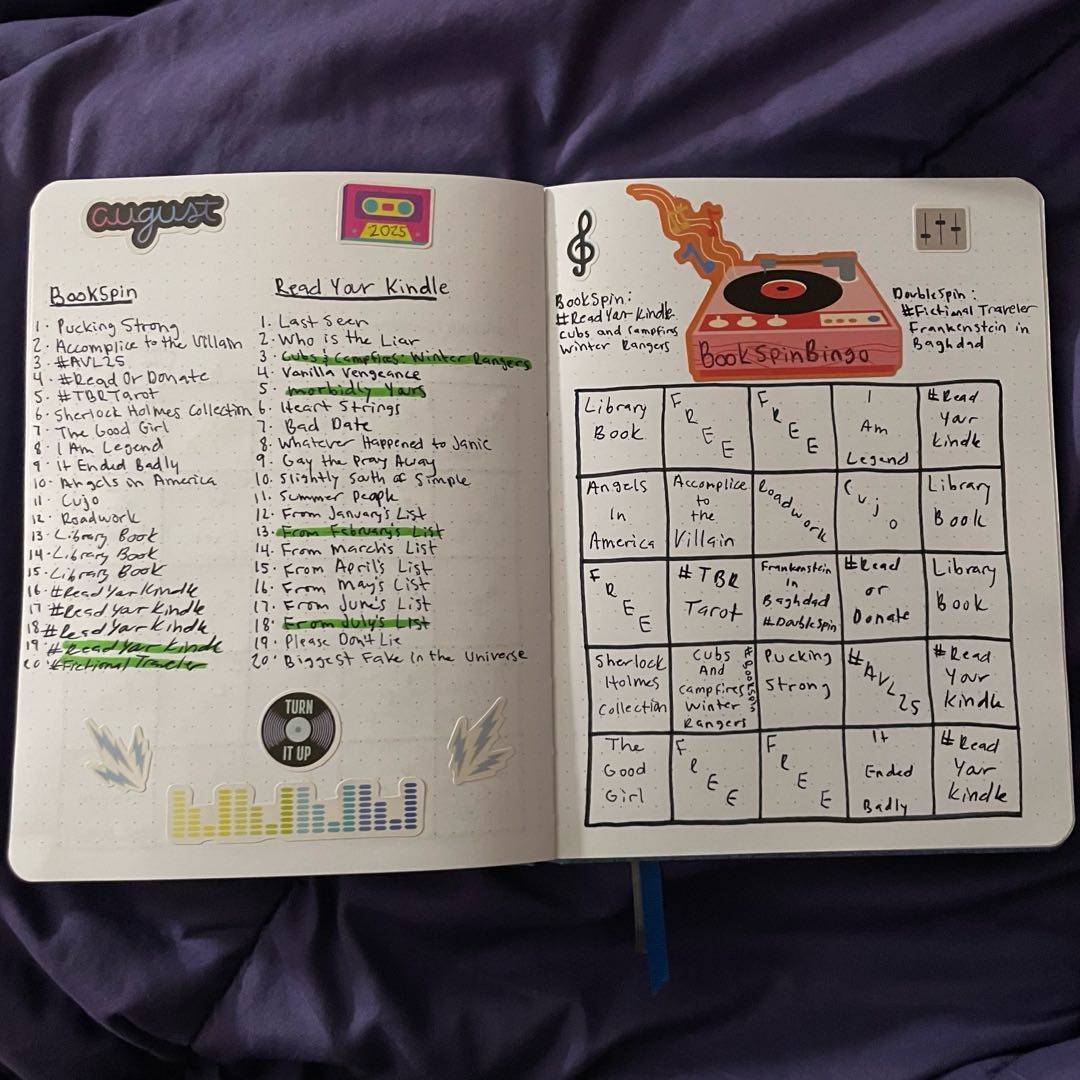 august
2025
BookSpin
1. Pucking Strong
2. Accomplice to the Villain
3. #AVL25
4. #Read Or Donate
5. #TBRTarot
6. Sherlock Holmes Collection
7. The Good Girl
8. I Am Legend
9. It Ended Badly
10. Angels in America
11. Cujo
12. Roadwork
13. Library Book
14. Library Book
15. Library Book
16. #Read Your Kindle
17. #Read Your Kindle
18. #Read Your Kindle
19. #Read Your Kindle
20. #Fictional Traveler
Read Your Kindle
1. Last Seen
2. Who is the Liar
3. Cubs & Campfires: Winter Rangers
4. Vanilla Vengeance
5. Morbidly Yours
6. Heart Strings
7. Bad Date
8. Whatever Happened to Janie
9. Gay the Pray Away
10. Slightly South of Simple
11. Summer People
12. From January's List
13. From February's List
14. From March's List
15. From April's List
16. From May's List
17. From June's List
18. From July's List
19. Please Don't Lie
20. Biggest Fake in the Universe
TURN
IT UP
BookSpin:
#Read Your Kindle
Cubs and Campfires
Winter Rangers
BookSpinBingo
DoubleSpin:
#Fictional Traveler
Frankenstein in
Baghdad
Library
Book
FREE
FREE
I
Am
Legend
#Read
Your
Kindle
Angels
In
America
Accomplice
to
the
Villain
Roadwork
Cujo
Library
Book
FREE
#TBR
Tarot
Frankenstein
in
Baghdad
#DoubleSpin
#Read
or
Donate
Library
Book
Sherlock
Holmes
Collection
Cubs
And
Campfires
Winter
Rangers
#BookSpin
Pucking
Strong
#AVL25
#Read
Your
Kindle
The
Good
Girl
FREE
FREE
It
Ended
Badly
#Read
Your
Kindle